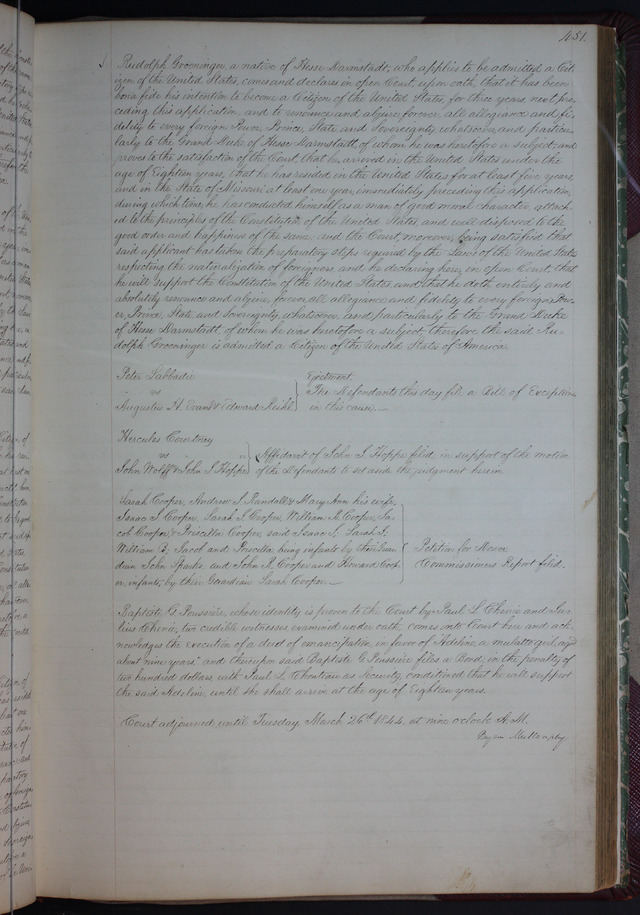 451.
Rudolph Grooninger, a native of Hesse Darmstadt; who applies to be admitted a Cit-
izen of the United States, comes and declares in open Court, upon oath, that it has been
bona fide his intention to become a Citizen of the United States, for three years, next pre-
ceding this application, and to renounce and abjure forever all allegiance and fi-
delity to every foreign Power, Prince, State and Sovereignty whatsoever, and particu-
larly to the Grand Duke of Hesse Darmstadt, of whom he was heretofore a subject: and
proves to the satisfaction of the Court, that he arrived in the United States under the
age of Eighteen years, that he has resided in the United States for at least five years,
and in the State of Missouri at least one year, immediately preceding this application,
during which time, he has conducted himself as a man of good moral character, attach-
ed to the principles of the Constitution of the United States, and well disposed to the
good order and happiness of the same: and the Court, moreover, being satisfied that
said applicant has taken the preparatory steps required by the Laws of the United States
respecting the naturalization of foreigners, and he declaring here, in open Court, that
he will support the Constitution of the United States, and that he doth entirely and
absolutely renounce and abjure, forever, all allegiance and fidelity to every foreign Pow-
er, Prince, State and Sovereignty, whatsoever, and particularly to the Grand Duke
of Hesse Darmstadt, of whom he was heretofore a subject, therefore the said Ru-
dolph Grooninger is admitted a Citizen of the United State of America.
Peter Labbadie
vs
Augustus H. Evans & Edward
Ejectment.
The Defendants this day file a Bill of Exceptions
in this cause.
Hercules Courtney
vs
John Wolff & John S. Hopper
Affidavit of John S. Hopper filed, in support of the motion
of the Defendants to set aside the judgment herein.
Sarah Cooper, Andrew J. Randall & Mary Ann his wife,
Isaac S. Cooper, Sarah J. Cooper, William B. Cooper, Ja-
cob Cooper, & Priscilla Cooper, said Isaac S., Sarah J.
William B., Jacob and Priscilla, being infants by their Guar-
dian John Sparks, and John R. Cooper and Howard Coop-
er, infants, by their Guardian Sarah Cooper.
Petition for Dower
Commissioners Report filed.
Baptiste G. Poussire, whose identity is proven to the Court by Paul L. Chenie and Ju-
lius Chenie, two credible witnesses, examined under oath, comes into Court here and ack-
nowledges the execution of a deed of emancipation, in favor of Adeline, a mulatto girl, aged
about nine years: and thereupon said Baptiste G. Poussire files a Bond, in the penalty of
two hundred dollars, with Paul L. Chouteau as security, conditioned that he will support
the said Adeline, until she shall arrive at the age of Eighteen years.
Court adjourned, until Tuesday, March 26th 1844, at nine o'clock A.M.
Bryan Mullanphy